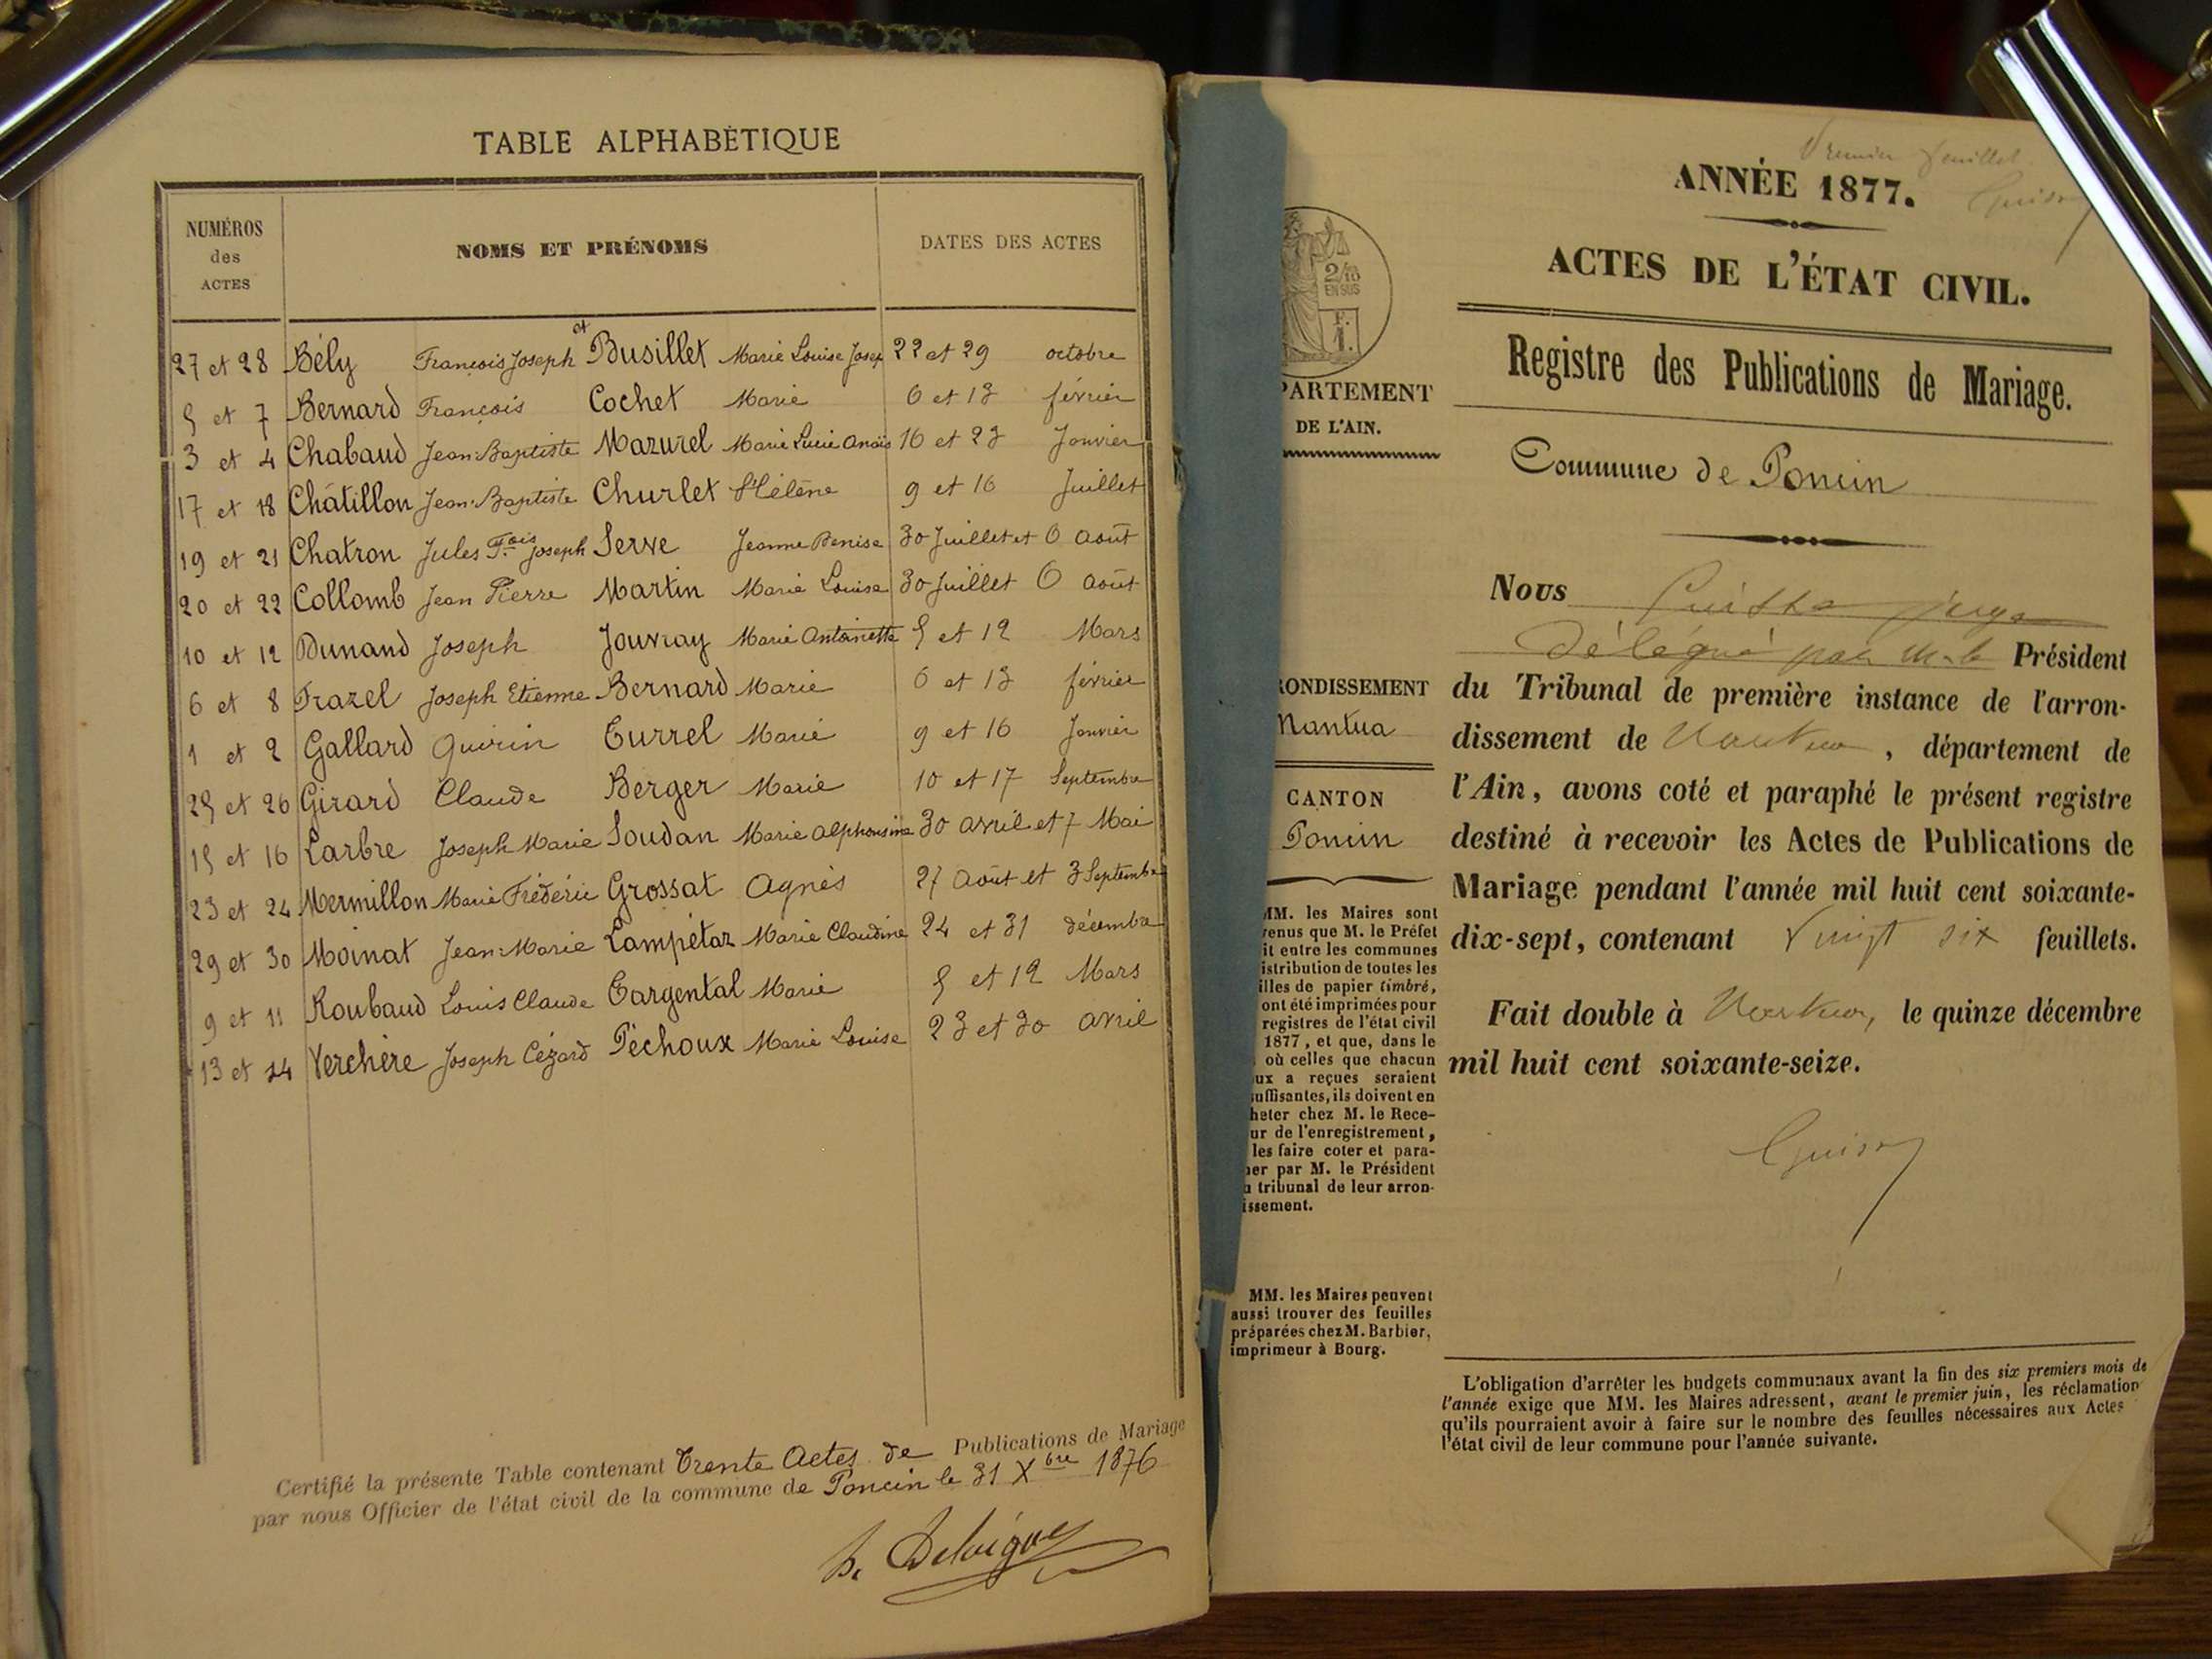 TABLE ALPHABÉTIQUE
NUMÉROS des ACTES
NOMS ET PRÉNOMS
DATES DES ACTES
27 et 28 Bély François Joseph et Busillet Marie Louise Josep 22 et 29 octobre
5 et 7 Bernard François Cochet Marie 6 et 13 février
3 et 4 Chabaud Jean-Baptiste Mazurel Marie Lucie Anaïs 16 et 23 Janvier
17 et 18 Châtillon Jean-Baptiste Churlet Hélène 9 et 16 Juillet
19 et 21 Chatron Jules Fois Joseph Serve Jeanne Denise 30 Juillet et 6 août
20 et 22 Collomb Jean Pierre Martin Marie Louise 30 Juillet 6 août
10 et 12 Dunand Joseph Jouvray Marie Antoinette 5 et 12 Mars
6 et 8 Frazel Joseph Etienne Bernard Marie 6 et 13 février
1 et 2 Gallard Quirin Turrel Marie 9 et 16 Janvier
25 et 26 Girard Claude Berger Marie 10 et 17 Septembre
15 et 16 Larbre Joseph Marie Soudan Marie Alphonsine 30 avril et 7 Mai
23 et 24 Mermillon Marie Frédéric Grossat Agnès 27 Août et 3 Septembre
29 et 30 Moinat Jean-Marie Lampétaz Marie Claudine 24 et 31 décembre
9 et 11 Roubaud Louis Claude Targental Marie 5 et 12 Mars
13 et 14 Verchère Joseph Cézard Péchoux Marie Louise 23 et 30 avril
Certifié la présente Table contenant Trente Actes de Publications de Mariage
par nous Officier de l'état civil de la commune de Poncin le 31 Xbre 1876
Premier feuillet
ANNÉE 1877.
ACTES DE L'ÉTAT CIVIL.
Registre des Publications de Mariage.
Commune de Poncin
2/10
EN SUS
F.
1.
PARTEMENT
DE L'AIN.
RONDISSEMENT
Nantua
CANTON
Poncin
MM. les Maires sont
venus que M. le Préfet
it entre les communes
istribution de toutes les
illes de papier timbré,
ont été imprimées pour
registres de l'état civil
1877, et que, dans le
où celles que chacun
ux a reçues seraient
uffisantes, ils doivent en
heter chez M. le Rece-
ur de l'enregistrement,
les faire coter et para-
er par M. le Président
u tribunal de leur arron-
issement.
MM. les Maires peuvent
aussi trouver des feuilles
préparées chez M. Barbier,
imprimeur à Bourg.
Nous juge
Délégué par M. le Président
du Tribunal de première instance de l'arron-
dissement de Nantua, département de
l'Ain, avons coté et paraphé le présent registre
destiné à recevoir les Actes de Publications de
Mariage pendant l'année mil huit cent soixante-
dix-sept, contenant Vingt six feuillets.
Fait double à Nantua, le quinze décembre
mil huit cent soixante-seize.
L'obligation d'arrêter les budgets communaux avant la fin des six premiers mois de
l'année exige que MM. les Maires adressent, avant le premier juin, les réclamation
qu'ils pourraient avoir à faire sur le nombre des feuilles nécessaires aux Actes
l'état civil de leur commune pour l'année suivante.